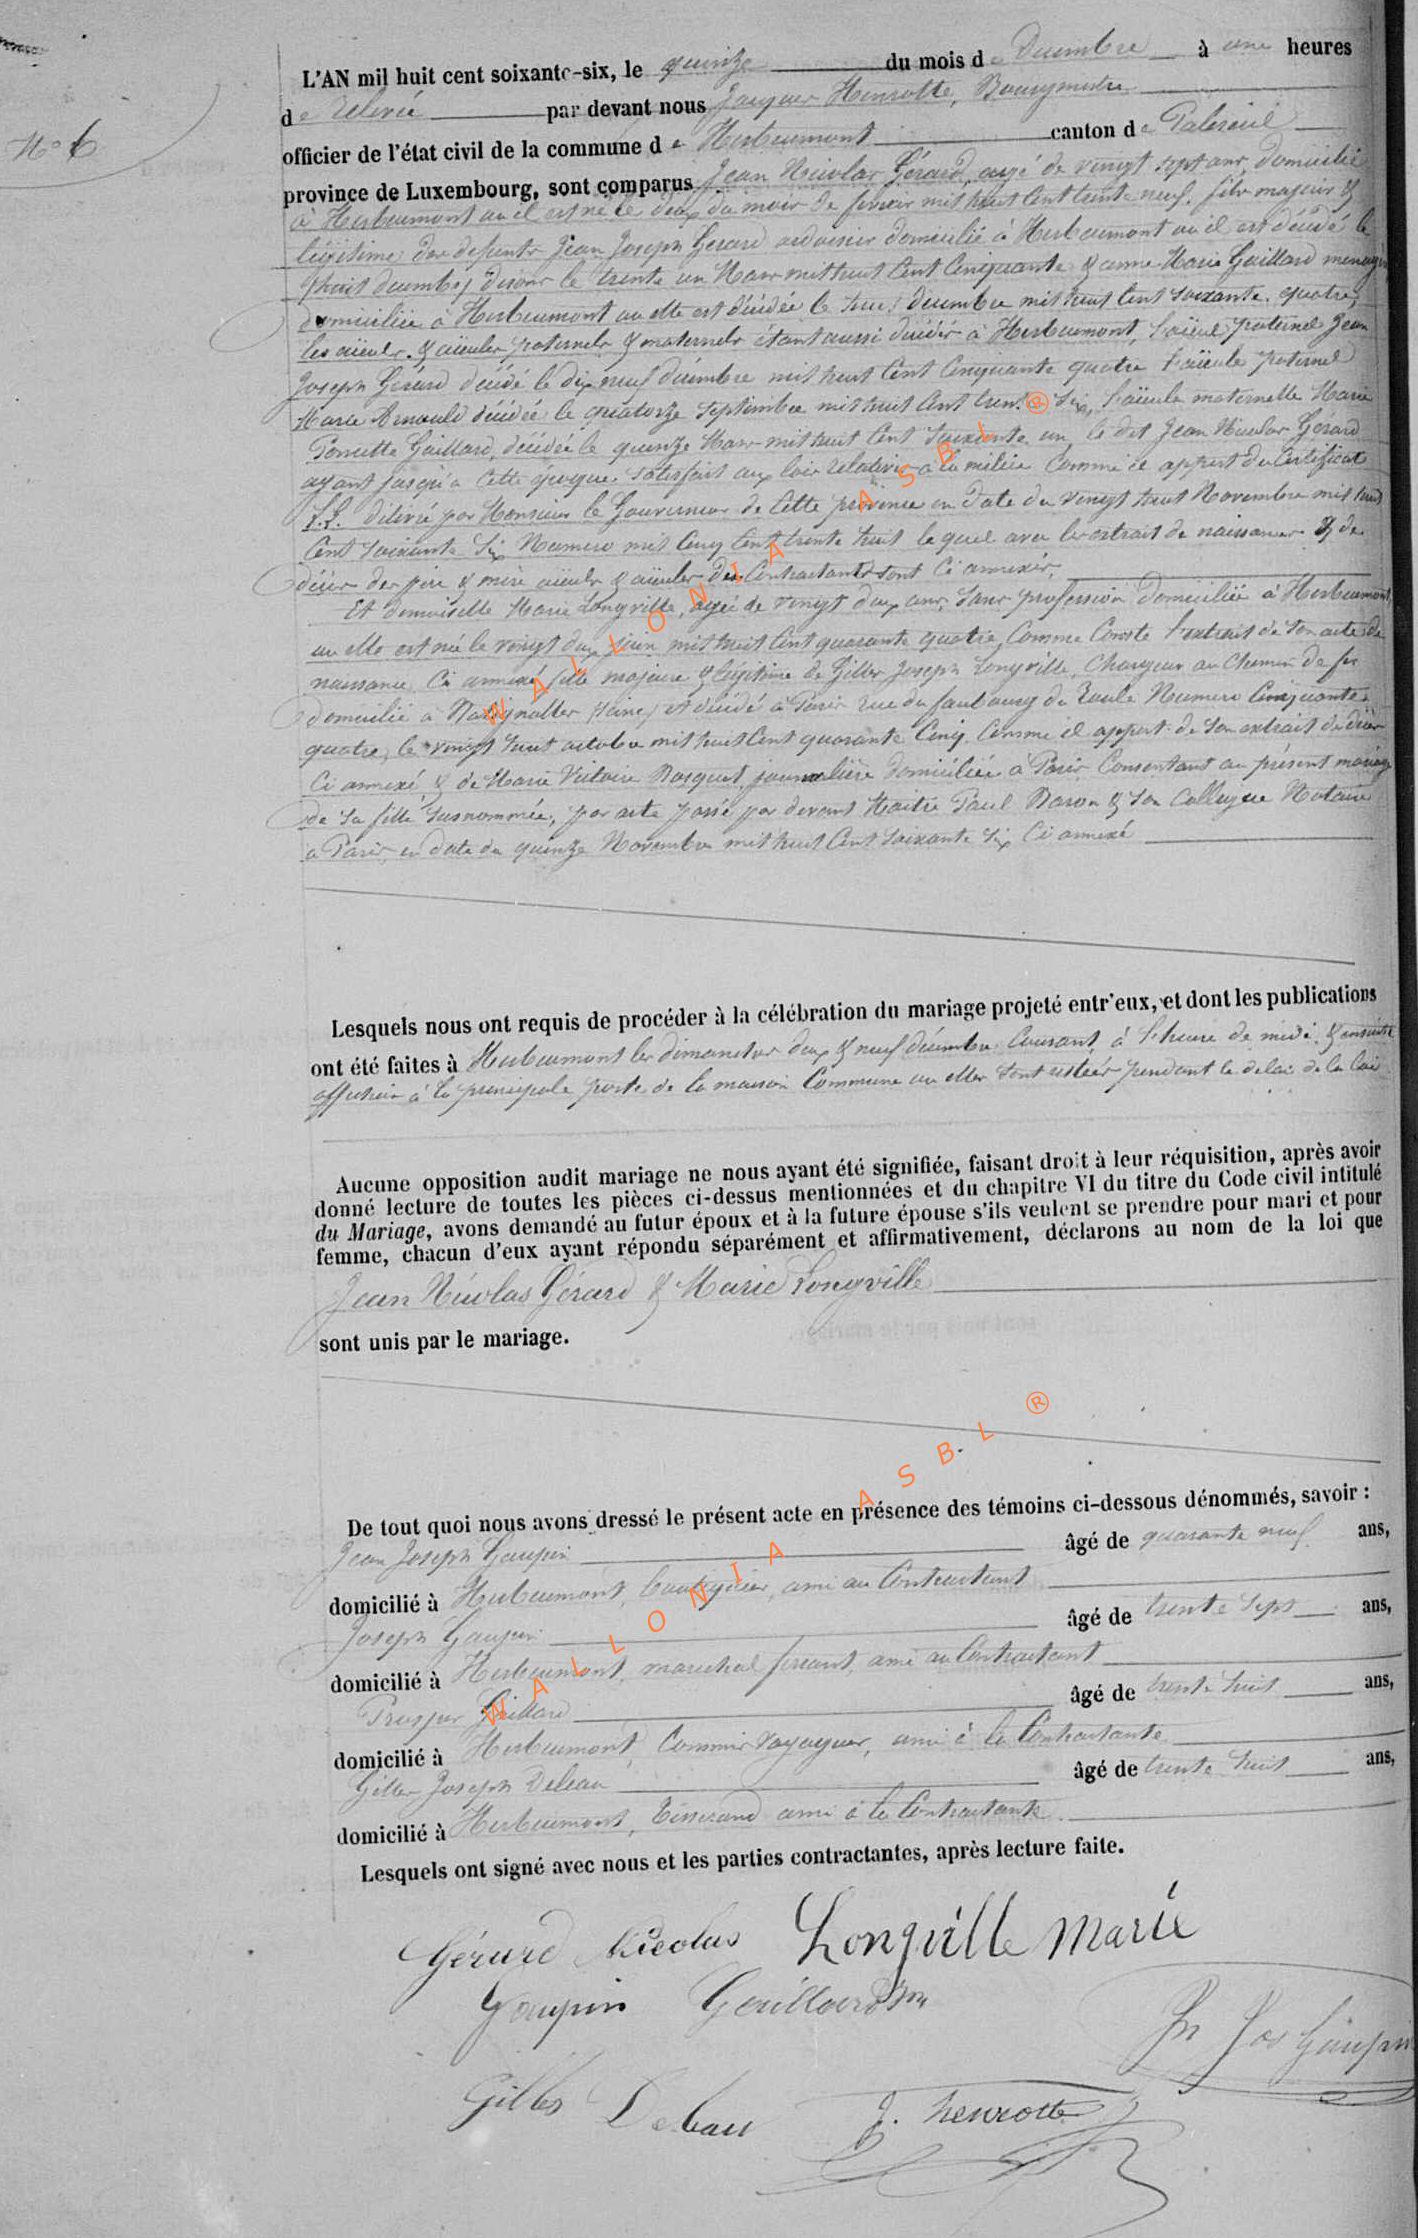 N° 6
L'AN mil huit cent soixante-six, le quinze du mois de Décembre à une heures
de relevée par devant nous Jacques Henrotte, Bourgmestre
officier de l'état civil de la commune de Herbeumont canton de Paliseul
province de Luxembourg, sont comparus Jean Nicolas Gérard, agé de vingt sept ans, domicilié
à Herbeumont où il est né le deux du mois de février mil huit cent trente neuf, fils majeur &
légitime des defunts Jean Joseph Gerard ardoisier domicilié à Herbeumont où il est décédé le
huit décembre disons le trente un Mars mil huit cent cinquante & anne Marie Gaillard menagère
domiciliée à Herbeumont où elle est décédée le huit décembre mil huit cent soixante quatre,
les aïeuls & aïeules paternels & maternels étant aussi décédés à Herbeumont, l'aïeul paternel Jean
Joseph Gérard décédé le dix neuf décembre mil huit cent cinquante quatre l'aïeule paternel
Marie Arnould décédée le quatorze septembre mil huit cent trente six, l'aïeule maternelle Marie
Poncette Gaillard, décédée le quinze Mars mil huit cent soixante un, le dit Jean Nicolas Gérard
ayant jusqu'à cette époque satisfait aux lois relatives à la milice comme il appert du Certificat
délivré par Monsieur le Gouverneur de cette province en date du vingt huit Novembre mil huit
cent soixante six Numero mil cinq cent trente huit lequel avec les extrait de naissances & de
décès des père & mère aïeuls & aïeules des Contractants sont ci annexés.
Et demoiselle Marie Longville, agée de vingt deux ans, sans profession domiciliée à Herbeumont,
où elle est née le vingt deux juin mil huit cent quarante quatre, comme conste l'extrait de son acte de
naissance ci annexé fille majeure & légitime de Gilles Joseph Longville, chargeur au chemin de fer
domicilié à (Seine) et décédé à Paris rue du faubourg du Roule Numero cinquante
quatre, le vingt huit octobre mil huit cent quarante cinq comme il appert de son extrait de décès
ci annexé & de Marie Victoire Bosquet, journalière domiciliée à Paris consentant au présent mariage
de sa fille susnommée, par acte passé par devant Maitre Paul Baron & son collegue Notaire
a Paris, en date du quinze Novembre mil huit cent soixante six ci annexé
Lesquels nous ont requis de procéder à la célébration du mariage projeté entr'eux, et dont les publications
ont été faites à Herbeumont les dimanches deux & neuf décembre courant, à l'heure de midi & ensuite
affichées à la principale porte de la maison Commune où elles sont restées pendant le delai de la loi
Aucune opposition audit mariage ne nous ayant été signifiée, faisant droit à leur réquisition, après avoir
donné lecture de toutes les pièces ci-dessus mentionnées et du chapitre VI du titre du Code civil intitulé
du Mariage, avons demandé au futur époux et à la future épouse s'ils veulent se prendre pour mari et pour
femme, chacun d'eux ayant répondu séparément et affirmativement, déclarons au nom de la loi que
Jean Nicolas Gérard & Marie Longville
sont unis par le mariage.
De tout quoi nous avons dressé le présent acte en présence des témoins ci-dessous dénommés, savoir :
Jean Joseph Gaupin âgé de quarante neuf ans,
domicilié à Herbeumont, ami au Contractant
Joseph Gaupin âgé de trente sept ans,
domicilié à Herbeumont, marechal ferrant, ami au Contractant
Prosper Gaillard âgé de trente huit ans,
domicilié à Herbeumont, Commis Voyageur, ami à la Contractante
Gilles Joseph Deleau âgé de trente huit ans,
domicilié à Herbeumont, Tisserand ami à la Contractante
Lesquels ont signé avec nous et les parties contractantes, après lecture faite.
Gérard Nicolas Longville Marie
Gaupin Gaillard Jn Jos Gaupin
Gilles Deleau J. Henrotte
WALLONIA ASBL ®
WALLONIA ASBL ®